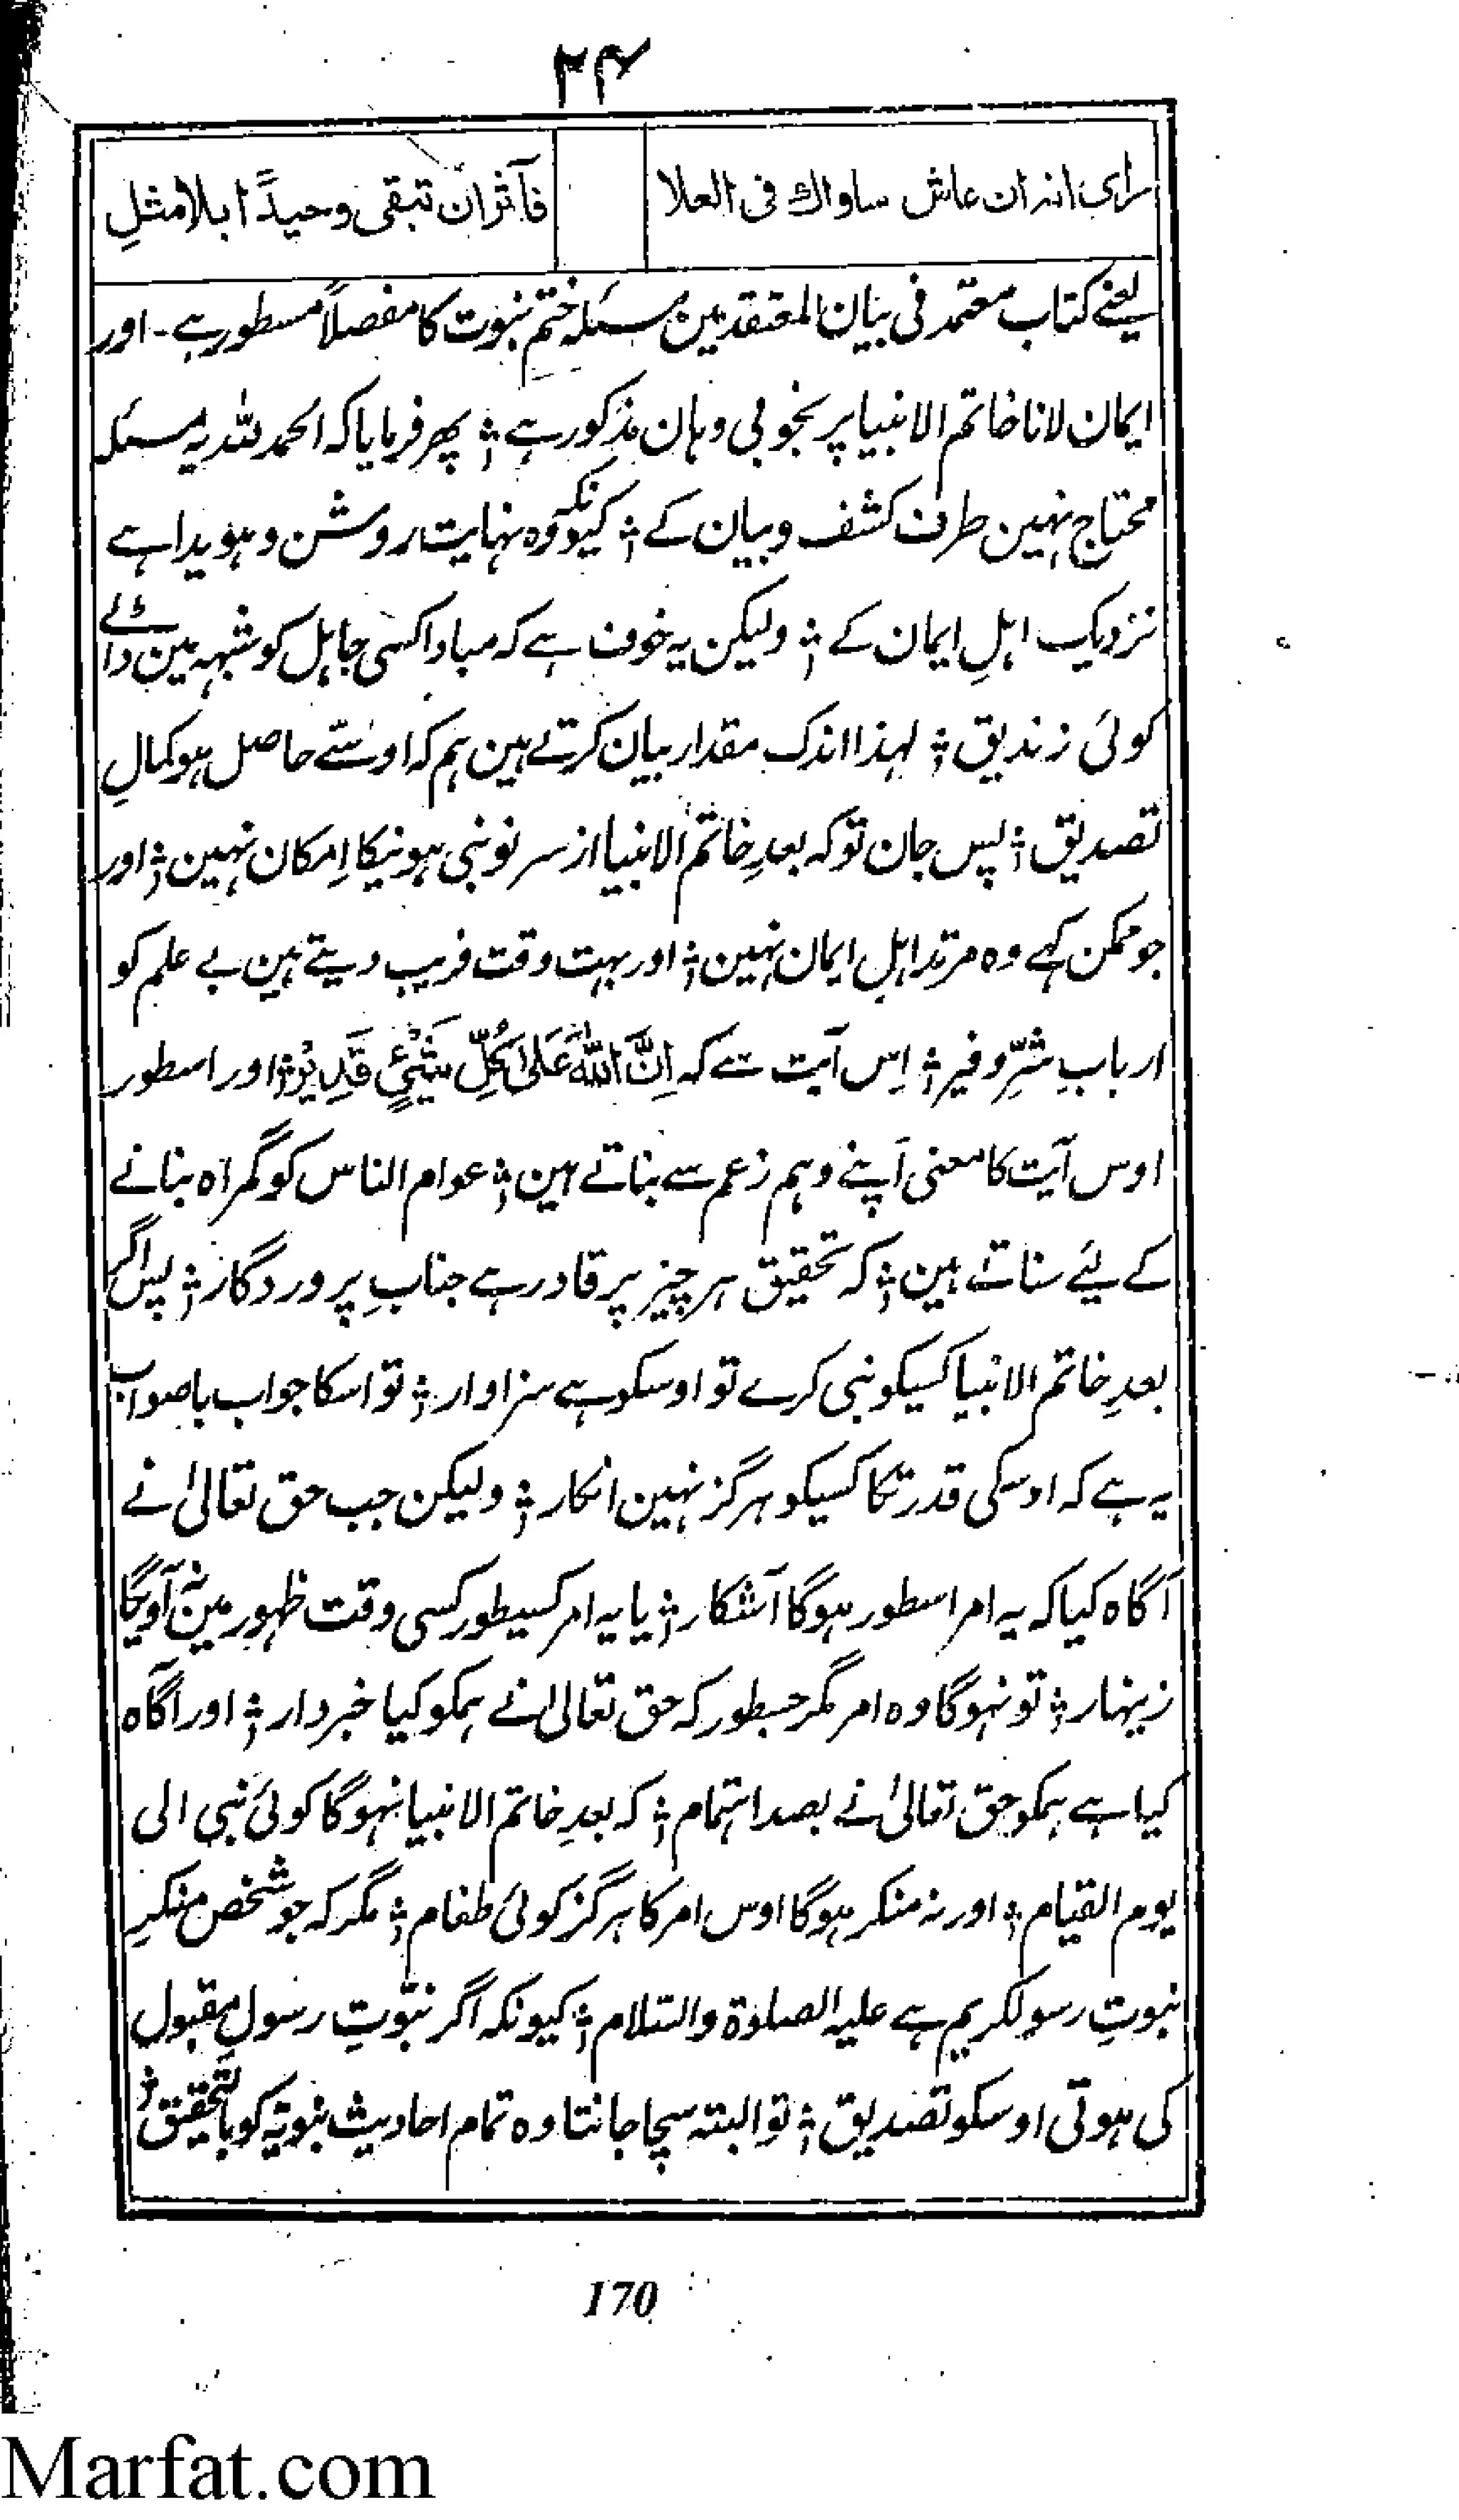 ۲۴
رای انه ان عاش ساواك فی العلا
فآثران تبقی وحیداً ابلامثلِ
یعنے کتاب معتمد فی بیان المقتقدین مسئلہ ختمِ نبوت کا مفصلاً مسطور ہے ۔ اور
ایمان لانا خاتم الانبیا پر بخوبی وہان مذکور ہے ؛ پھر فرمایا کہ الحمد للہ یہ مسئلہ
محتاج نہین طرف کشف و بیان کے ؛ کیونکہ وہ نہایت روشن و ہویدا ہے
نزدیک اہلِ ایمان کے ؛ ولیکن یہ خوف ہے کہ مبادا کسی جاہل کو شبہہ مین ڈالے
کوئی زندیق ؛ لہذا اندک مقدار بیان کرتے ہین ہم کہ اوسّے حاصل ہو کمالِ
تصدیق ؛ پس جان تو کہ بعدِ خاتم الانبیا از سر نو نبی ہونیکا اِمکان نہین ؛ اور
جو ممکن کہے وہ مرتد اہلِ ایمان نہین ؛ اور بہت وقت فریب دیتے ہین بے علم کو
اربابِ شرّ و فیر ؛ اِس آیت سے کہ اِنَّ اللّٰهَ عَلٰی كُلِّ شَیْءٍ قَدِیْرٌ ؛ اور اسطور
اوس آیت کا معنی اپنے وہم زعم سے بناتے ہین ؛ عوام الناس کو گمراہ بنانے
کے لئے سناتے ہین ؛ کہ تحقیق ہر چیز پر قادر ہے جنابِ پروردگار ؛ پس اگر
بعدِ خاتم الانبیا کسیکو نبی کرے تو اوسکو ہے سزاوار ؛ تو اسکا جواب باصواب
یہ ہے کہ اوسکی قدرتکا کسیکو ہرگز نہین انکار ؛ ولیکن جب حق تعالیٰ نے
آگاہ کیا کہ یہ امر اسطور ہوگا آشکار ؛ یا یہ امر کسیطور کسی وقت ظہور مین نہ آویگا
زینہار ؛ تو نہوگا وہ امر مگر جسطور کہ حق تعالیٰ نے ہمکو کیا خبردار ؛ اور آگاہ
کیا ہے ہمکو حق تعالیٰ نے بصد اہتمام ؛ کہ بعدِ خاتم الانبیا نہوگا کوئی نبی الی
یوم القیام ؛ اور نہ منکر ہوگا اوس امر کا ہرگز کوئی طغام ؛ مگر کہ جو شخص منکرِ
نبوتِ رسولکریم ہے علیہ الصلوٰۃ والسّلام ؛ کیونکہ اگر نبوّتِ رسولِ مقبول
کی ہوتی اوسکو تصدیق ؛ تو البتہ سچا جانتا وہ تمام احادیثِ نبویّہ کو بالتّحقیق ؛
170
Marfat.com